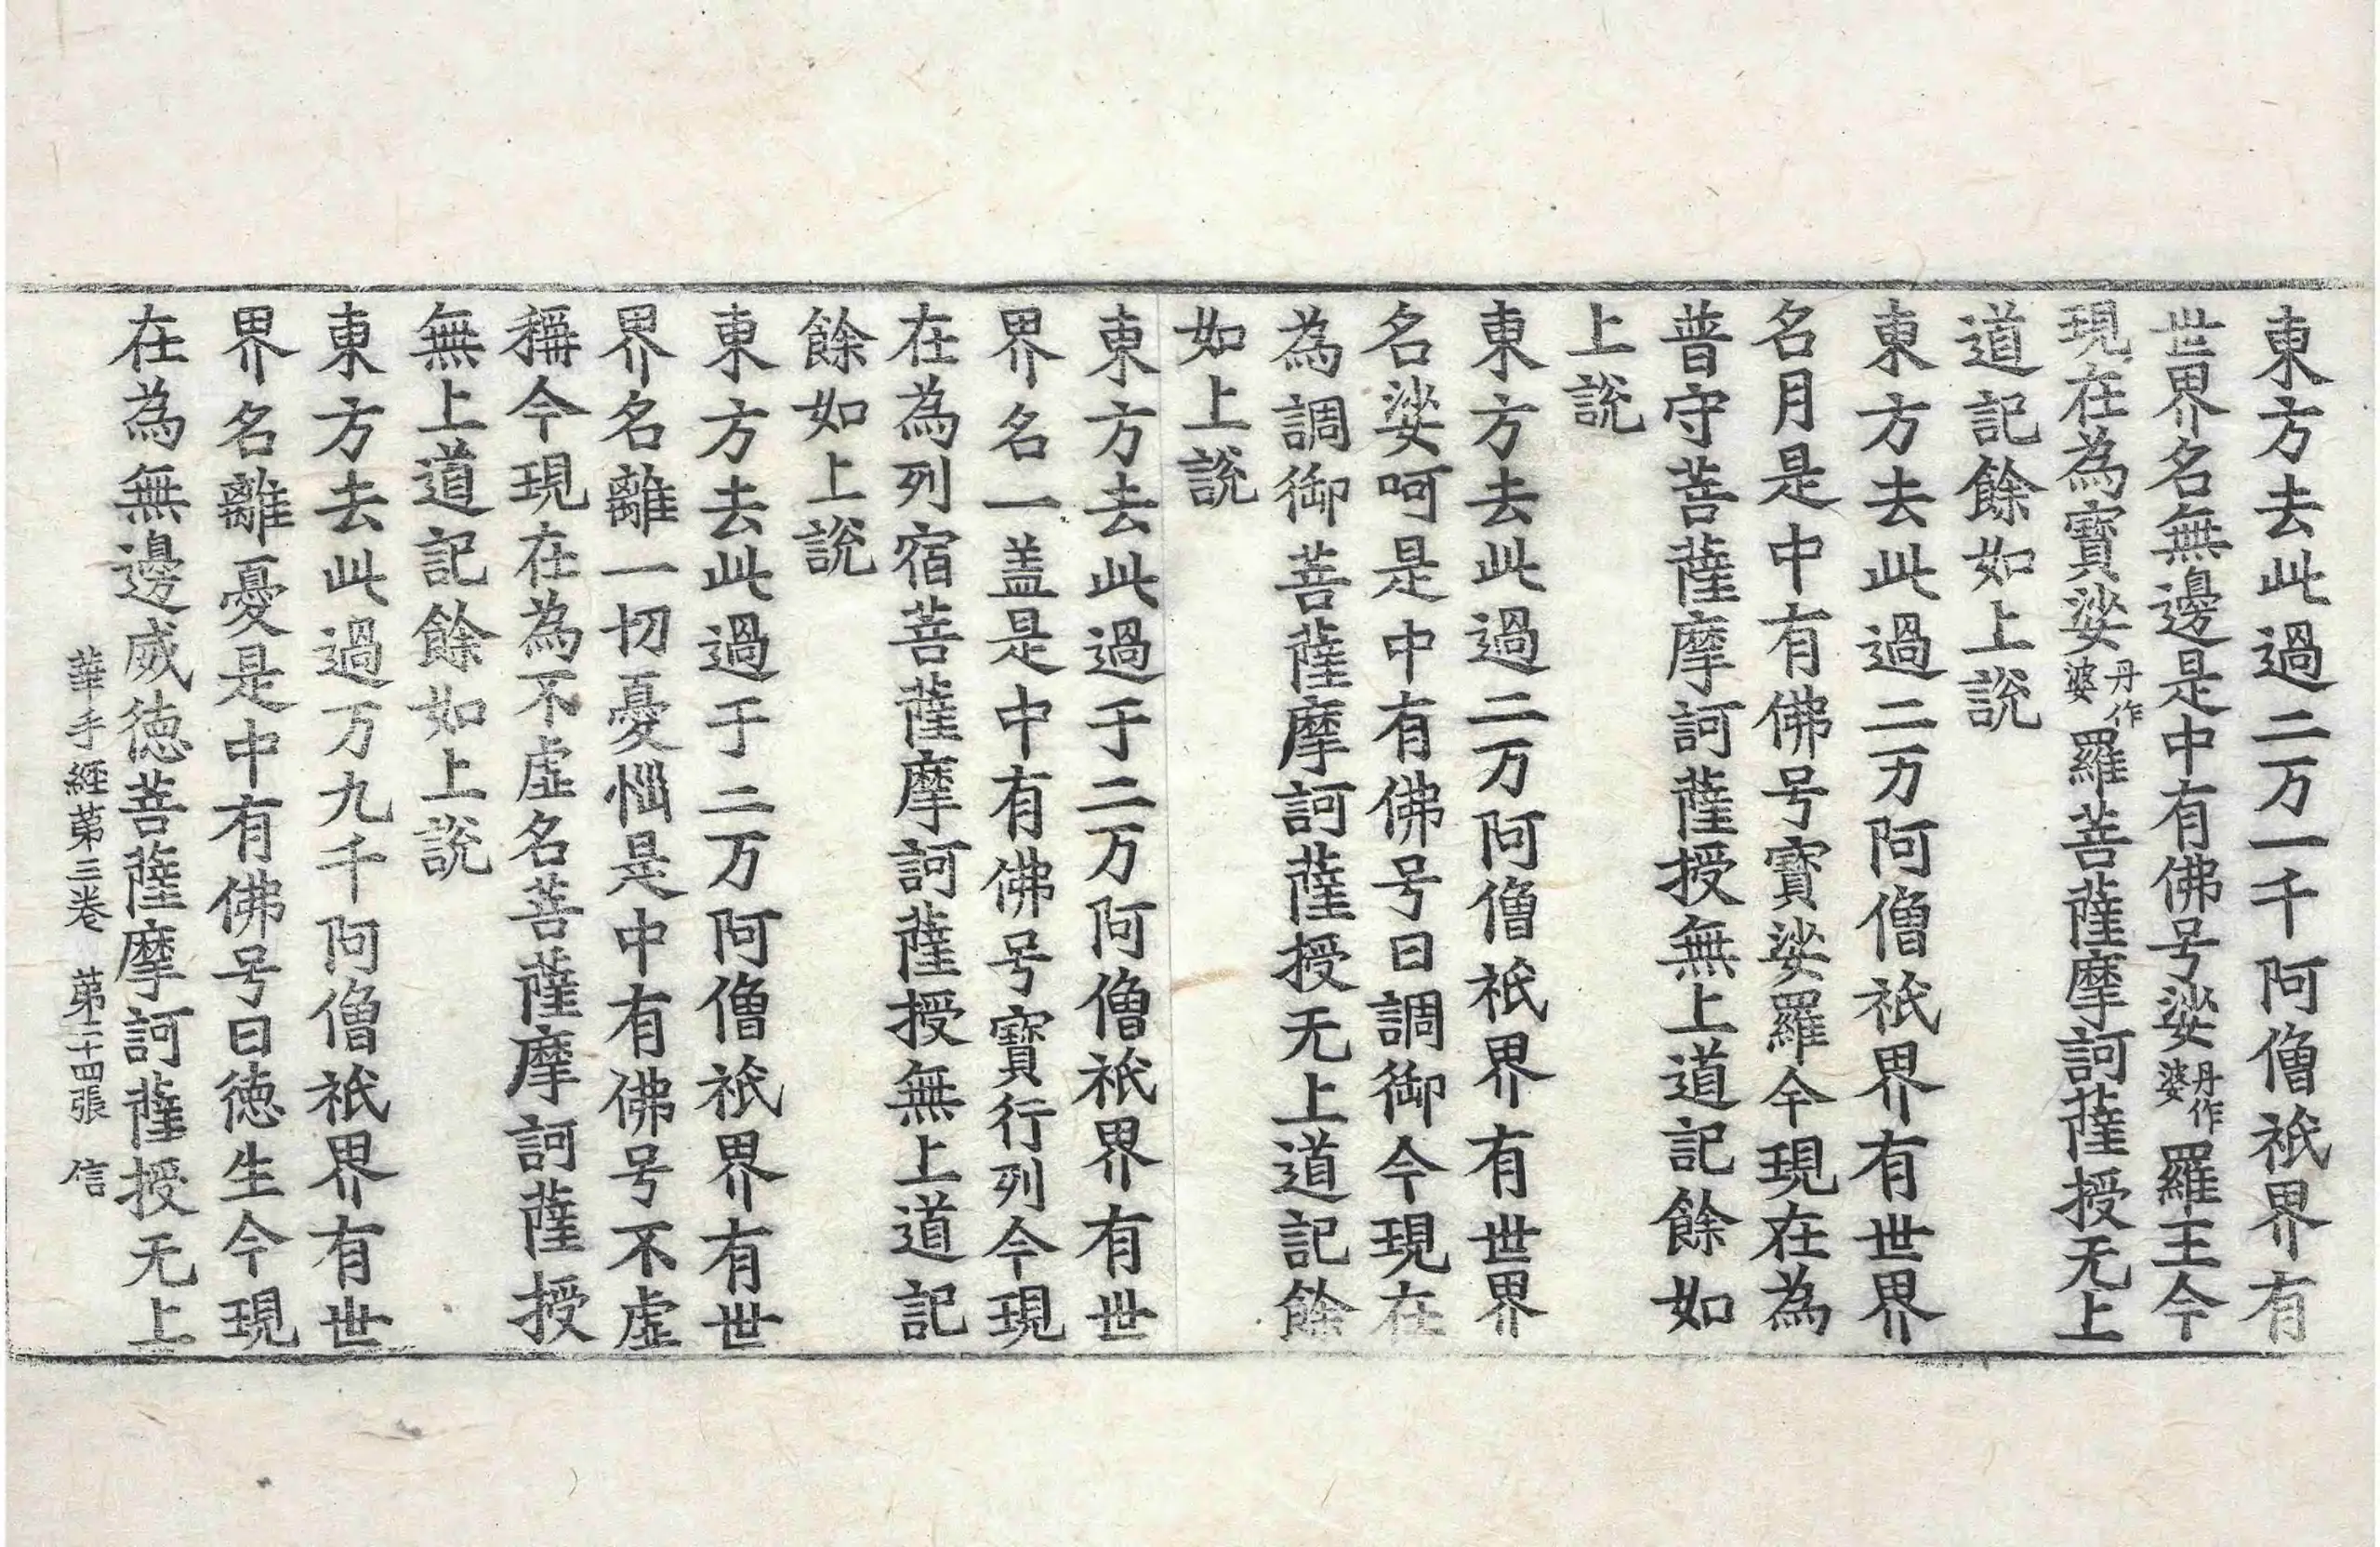 東方去此過二万一千阿僧祇界有
世界名無邊是中有佛号娑丹作婆羅王今
現在為寶娑丹作婆羅菩薩摩訶薩授无上
道記餘如上說
東方去此過二万阿僧祇界有世界
名月是中有佛号寶娑羅今現在為
普守菩薩摩訶薩授無上道記餘如
上說
東方去此過二万阿僧祇界有世界
名娑呵是中有佛号曰調御今現在
為調御菩薩摩訶薩授无上道記餘
如上說
東方去此過于二万阿僧祇界有世
界名一盖是中有佛号寶行列今現
在為列宿菩薩摩訶薩授無上道記
餘如上說
東方去此過于二万阿僧祇界有世
界名離一切憂惱是中有佛号不虛
稱今現在為不虛名菩薩摩訶薩授
無上道記餘如上說
東方去此過万九千阿僧祇界有世
界名離憂是中有佛号曰徳生今現
在為無邊威徳菩薩摩訶薩授无上
華手經苐三卷 苐二十四張 信